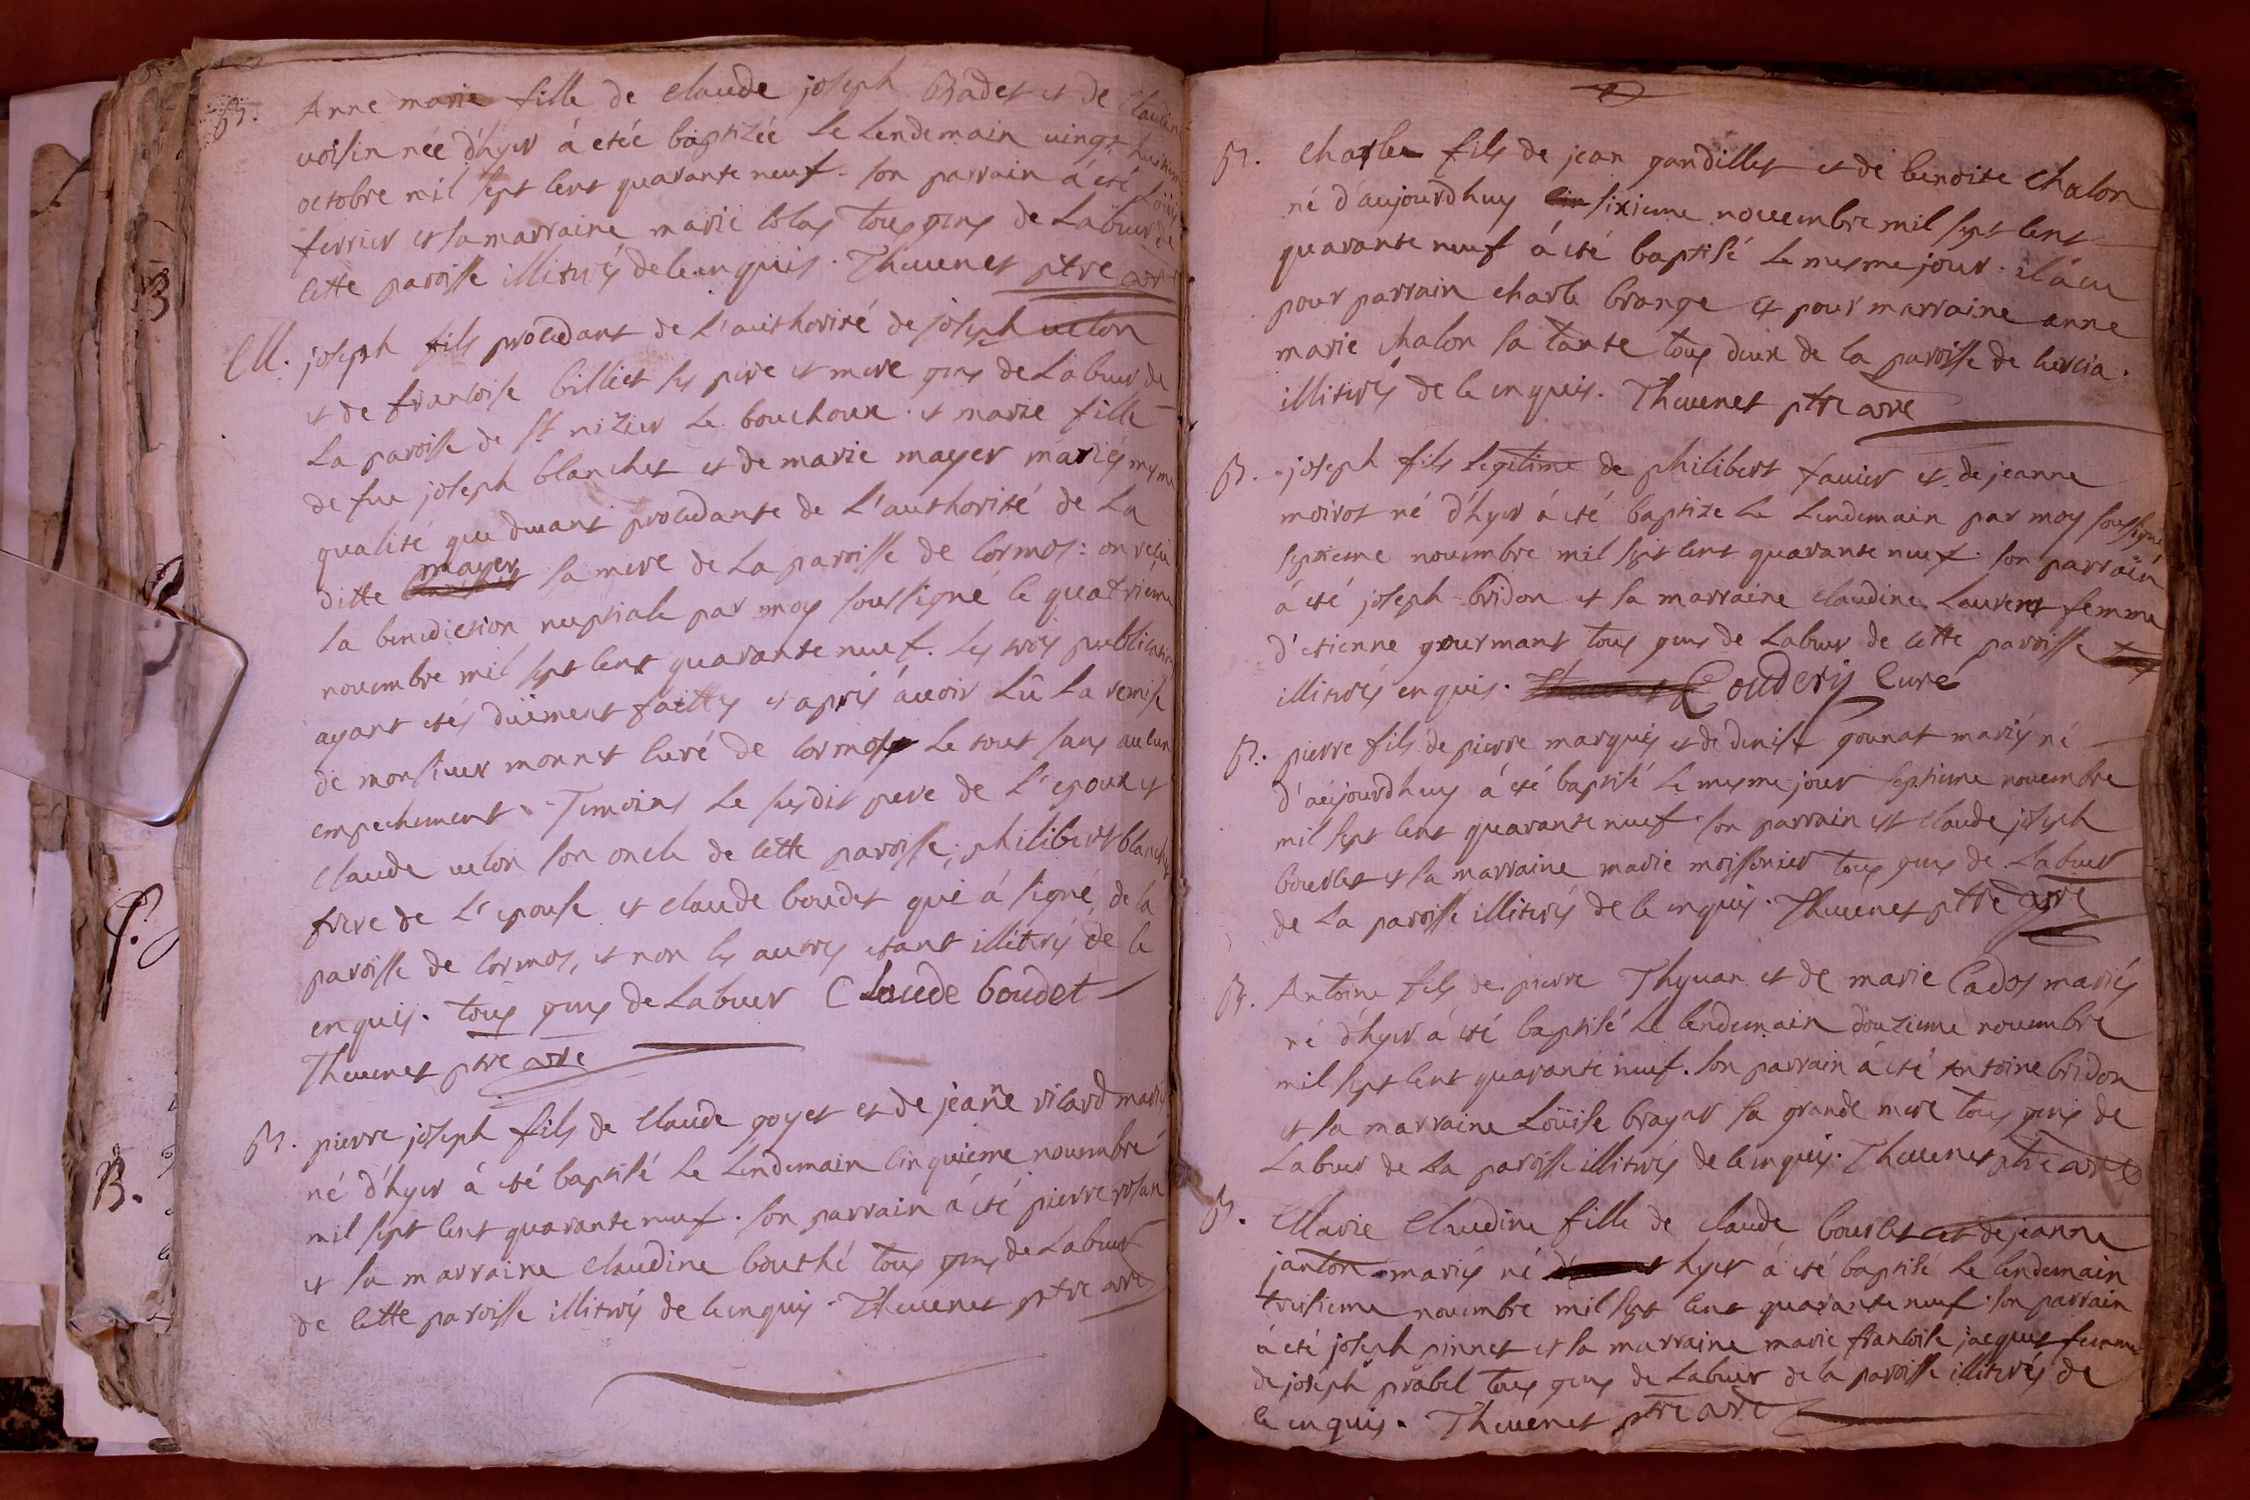 B. Anne marie fille de claude joseph Badet et de claudine
voisin née d'hyer á etée baptizée Le Lendemain vingt huitieme
octobre mil sept cent quarante neuf. son parrain á eté Loüis
ferrier et sa marraine marie colas tous gens de Labeur de
cette paroisse illiterés de ce enquis. Thevenet ptre arre
M. joseph fils procedant de L'authorité de joseph velon
et de francoise billiet ses pere et mere gens de Labeur de
La paroisse de st nizier Le bouchoux. et marie fille
de feu joseph blanchet et de marie mayer mariés mesme
qualité que devant procedante de L'authorité de La
ditte mayer sa mere de La paroisse de cormos: on reçu
la benediction nuptiale par moy soussigné le quatrieme
novembre mil sept cent quarante neuf. Les trois publications
ayant etés düement faittes et aprés avoir Lû La remise
de monsieur monnet curé de cormos Le tout sans aucun
empechement. Temoins Le susdit pere de L'epoux et
claude velon son oncle de cette paroisse; philibert blanchet
frere de L'epouse et claude boudet qui á signé, de la
paroisse de cormos, et non les autres etant illiterés de ce
enquis. tous gens de Labeur Claude boudet
Thevenet ptre arre
B. pierre joseph fils de claude goyet et de jeañe ricard mariés
né d'hyer á eté baptisé Le Lendemain cinquieme novembre
mil sept cent quarante neuf. son parrain á eté pierre rosan
et sa marraine claudine bouthé tous gens de Labeur
de cette paroisse illiterés de ce enquis. Thevenet ptre arre
B. charles fils de jean gandillet et de benoite chalon
né d'aujourdhuy sixieme novembre mil sept cent
quarante neuf á eté baptisé Le mesme jour. il á eu
pour parrain charle brange et pour marraine anne
marie chalon sa tante tous deux de la paroisse de curcia.
illiterés de ce enquis. Thevenet ptre arre
B. joseph fils Legitime de philibert favier et de jeanne
moirot né d'hyer á eté baptize Le Lendemain par moy soussigné
septieme novembre mil sept cent quarante neuf. son parrain
á eté joseph bridon et sa marraine claudine Laurent femme
d'etienne gourmant tous gens de Labeur de cette paroisse
illiterés enquis. Couderis Curé
B. pierre fils de pierre marquis et de denise gounat mariés né
d'aujourdhuy á eté baptisé Le mesme jour septieme novembre
mil sept cent quarante neuf son parrain est claude joseph
bourlet et sa marraine marie moissonier tous gens de Labeur
de La paroisse illiterés de ce enquis. Thevenet ptre arre
B. Antoine fils de pierre Thyvan et de marie Cados mariés
né d'hyer á eté baptisé Le lendemain douzieme novembre
mil sept cent quarante neuf. son parrain á eté Antoine bridon
et sa marraine Loüise brayar sa grande mere tous gens de
Labeur de La paroisse illiterés de ce enquis. Thevenet ptre arre
B. Marie Claudine fille de claude bourlet et de jeanne
janton mariés né hyer á eté baptisé Le lendemain
treisieme novembre mil sept cent quarante neuf. son parrain
á eté joseph pinnet et sa marraine marie francoise jacquet femme
de joseph prabel tous gens de Labeur de la paroisse illiterés de
ce enquis. Thevenet ptre arre